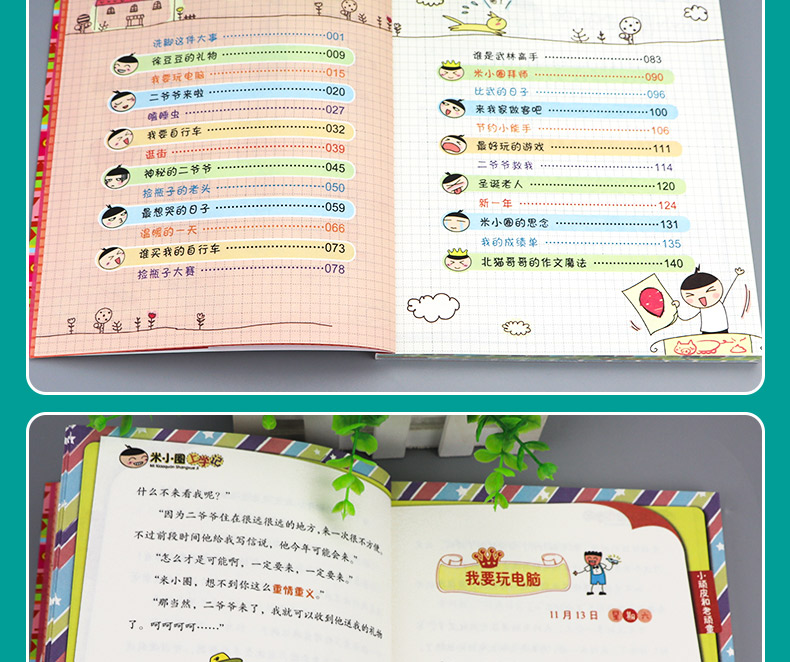 洗脚这件大事 001
徐豆豆的礼物 009
我要玩电脑 015
二爷爷来啦 020
瞌睡虫 027
我要自行车 032
逛街 039
神秘的二爷爷 045
捡瓶子的老头 050
最想哭的日子 059
温暖的一天 066
谁买我的自行车 073
捡瓶子大赛 078
谁是武林高手 083
米小圈拜师 090
比武的日子 096
来我家做客吧 100
节约小能手 106
最好玩的游戏 111
二爷爷教我 114
圣诞老人 120
新一年 124
米小圈的思念 131
我的成绩单 135
北猫哥哥的作文魔法 140
米小圈上学记
Mi Xiaoquan Shangxue Ji
什么不来看我呢？”
“因为二爷爷住在很远很远的地方，来一次很不方便。
不过前段时间他给我写信说，他今年可能会来。”
“怎么才是可能啊，一定要来，一定要来。”
“米小圈，想不到你这么重情重义。”
“那当然，二爷爷来了，我就可以收到他送我的礼物
了。呵呵呵呵……”
我要玩电脑
11月13日 星期六
小顽皮和老顽童